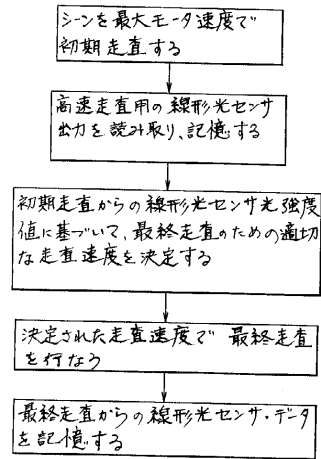 シーンを最大モータ速度で
初期走査する
高速走査用の線形光センサ
出力を読み取り、記憶する
初期走査からの線形光センサ光強度
値に基づいて、最終走査のための適切
な走査速度を決定する
決定された走査速度で 最終走査
を行なう
最終走査からの線形光センサ・データ
を記憶する